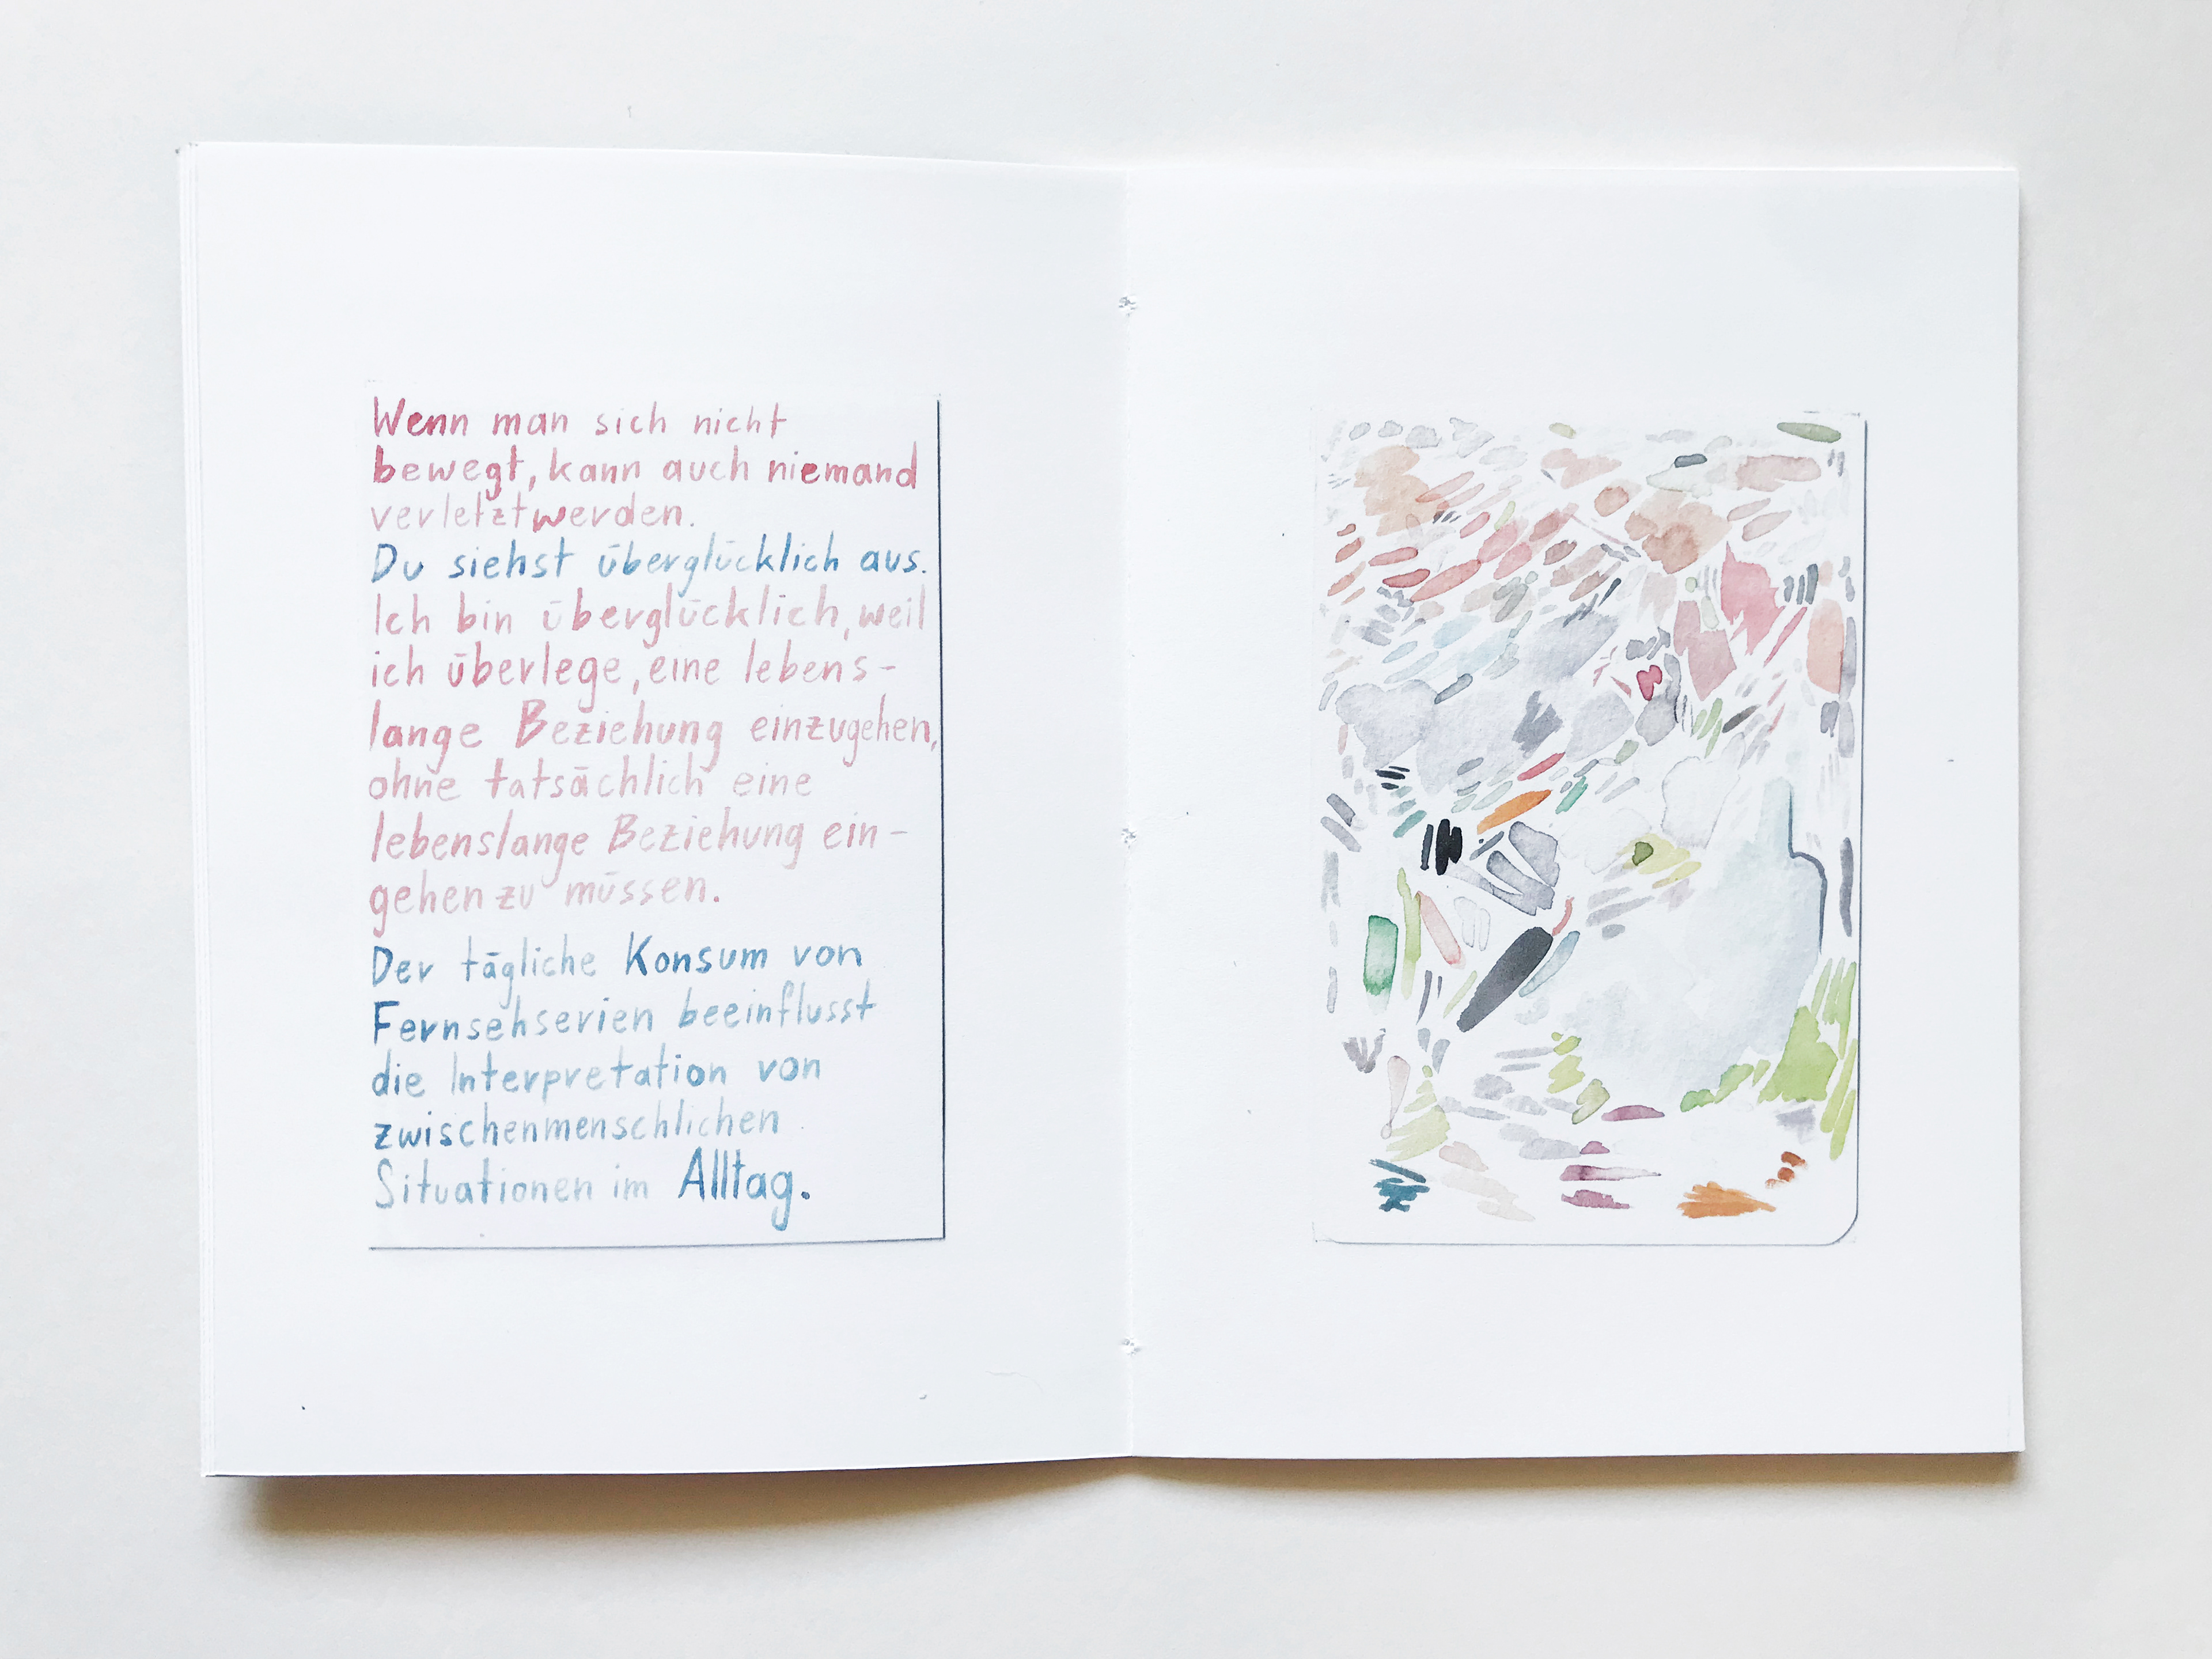 Wenn man sich nicht
bewegt, kann auch niemand
verletzt werden.
Du siehst überglücklich aus.
Ich bin überglücklich, weil
ich überlege, eine lebens-
lange Beziehung einzugehen,
ohne tatsächlich eine
lebenslange Beziehung ein-
gehen zu müssen.
Der tägliche Konsum von
Fernsehserien beeinflusst
die Interpretation von
zwischenmenschlichen
Situationen im Alltag.